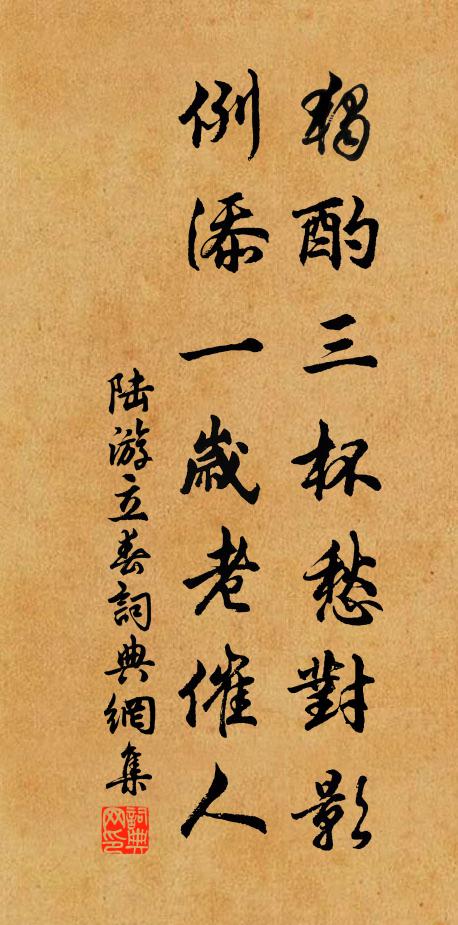 獨酌三杯愁對影
例添一歲老催人
陆游立春詞典網集
詞典网印